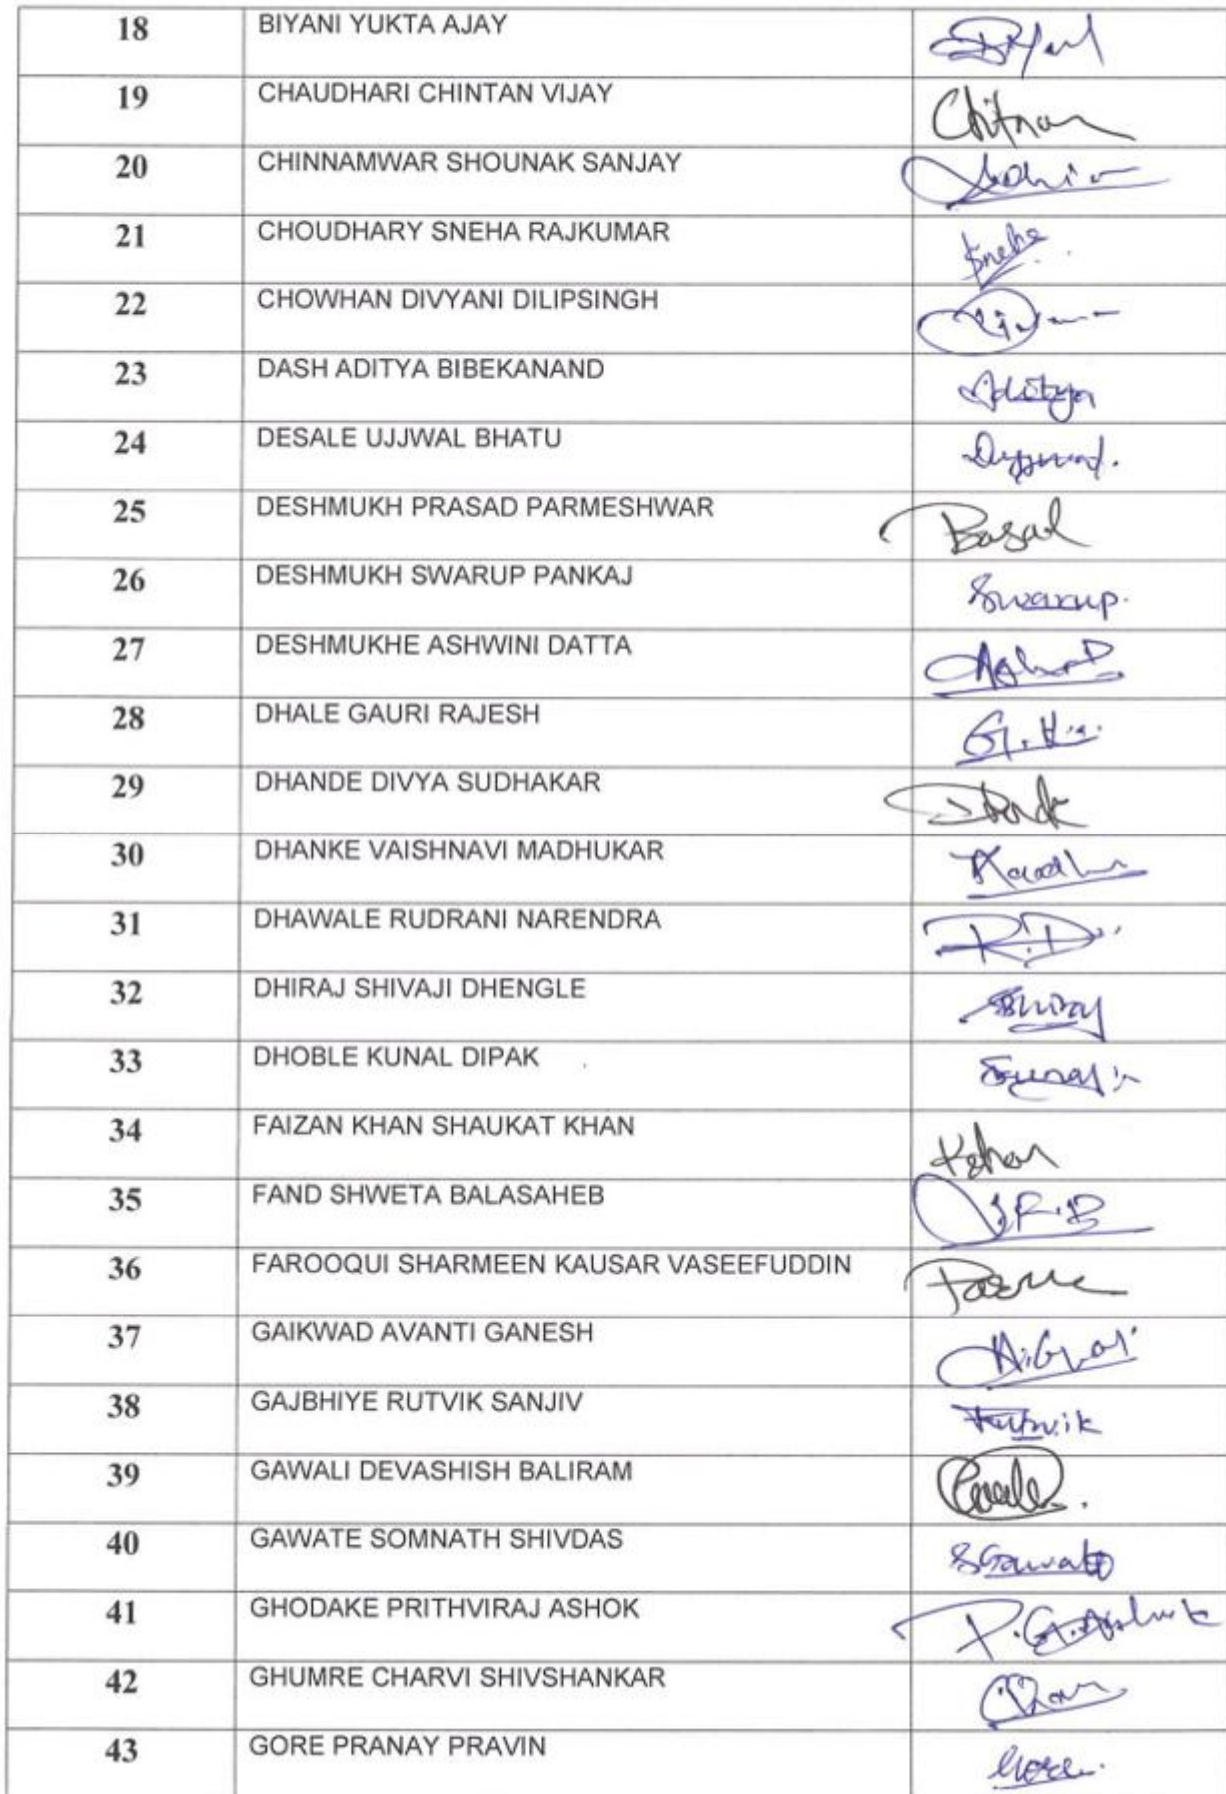 18 BIYANI YUKTA AJAY
19 CHAUDHARI CHINTAN VIJAY
20 CHINNAMWAR SHOUNAK SANJAY
21 CHOUDHARY SNEHA RAJKUMAR Sneha
22 CHOWHAN DIVYANI DILIPSINGH
23 DASH ADITYA BIBEKANAND Aditya
24 DESALE UJJWAL BHATU
25 DESHMUKH PRASAD PARMESHWAR
26 DESHMUKH SWARUP PANKAJ Swarup.
27 DESHMUKHE ASHWINI DATTA
28 DHALE GAURI RAJESH
29 DHANDE DIVYA SUDHAKAR
30 DHANKE VAISHNAVI MADHUKAR
31 DHAWALE RUDRANI NARENDRA R.D
32 DHIRAJ SHIVAJI DHENGLE
33 DHOBLE KUNAL DIPAK
34 FAIZAN KHAN SHAUKAT KHAN
35 FAND SHWETA BALASAHEB
36 FAROOQUI SHARMEEN KAUSAR VASEEFUDDIN
37 GAIKWAD AVANTI GANESH
38 GAJBHIYE RUTVIK SANJIV Rutvik
39 GAWALI DEVASHISH BALIRAM
40 GAWATE SOMNATH SHIVDAS SGawate
41 GHODAKE PRITHVIRAJ ASHOK P.G.Ashok
42 GHUMRE CHARVI SHIVSHANKAR
43 GORE PRANAY PRAVIN